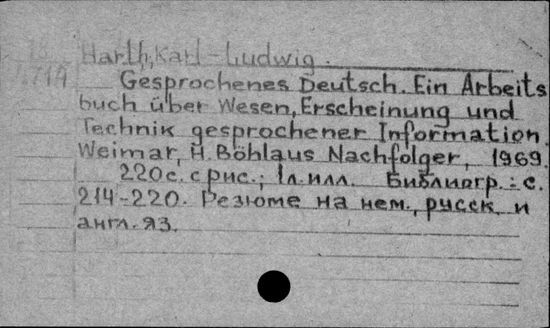 Harth, Karl-Ludwig.
Gesprochenes Deutsch. Ein Arbeits
buch über Wesen, Erscheinung und
Technik gesprochener Information.
Weimar, H. Böhlaus Nachfolger, 1969.
220с. с рис.; 1л. илл. Библиогр.: с.
214-220. Резюме на нем., русск. и
англ. яз.